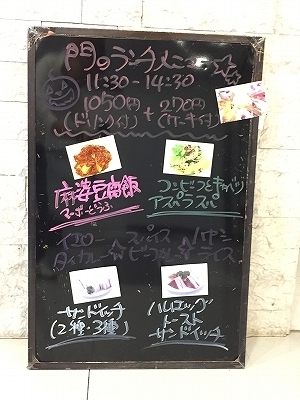 門のランチメニュー
11:30-14:30
1050円 + 270円
(ドリンク付) (ケーキ付)
麻婆豆腐飯
マーボーどうふ
コンビーフとキャベツ
アスパラパスタ
サンドイッチ
(2種・3種)
ハムエッグ
トースト
サンドイッチ